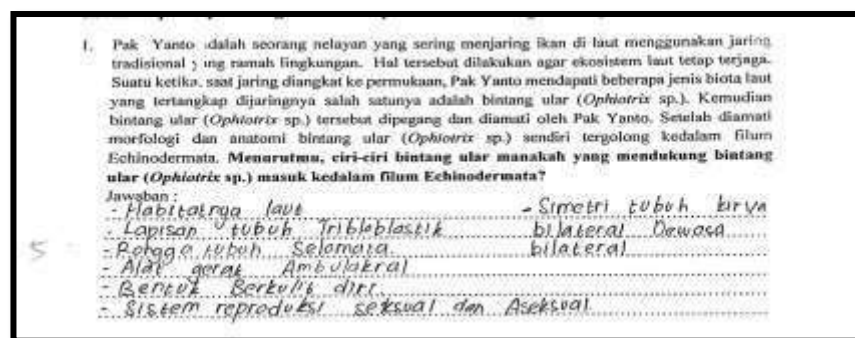 1. Pak Yanto adalah seorang nelayan yang sering menjaring ikan di laut menggunakan jaring
tradisional yang ramah lingkungan. Hal tersebut dilakukan agar ekosistem laut tetap terjaga.
Suatu ketika, saat jaring diangkat ke permukaan, Pak Yanto mendapati beberapa jenis biota laut
yang tertangkap dijaringnya salah satunya adalah bintang ular (Ophiotrix sp.). Kemudian
bintang ular (Ophiotrix sp.) tersebut dipegang dan diamati oleh Pak Yanto. Setelah diamati
morfologi dan anatomi bintang ular (Ophiotrix sp.) sendiri tergolong kedalam filum
Echinodermata. Menurutmu, ciri-ciri bintang ular manakah yang mendukung bintang
ular (Ophiotrix sp.) masuk kedalam filum Echinodermata?
Jawaban :
- Habitatnya laut - Simetri tubuh
- Lapisan tubuh Tribloblastik bilateral Dewasa
5 - Rongga tubuh Selomata bilateral
- Alat gerak Ambulakral
- Bentuk Berkulit duri
- Sistem reproduksi seksual dan Aseksual